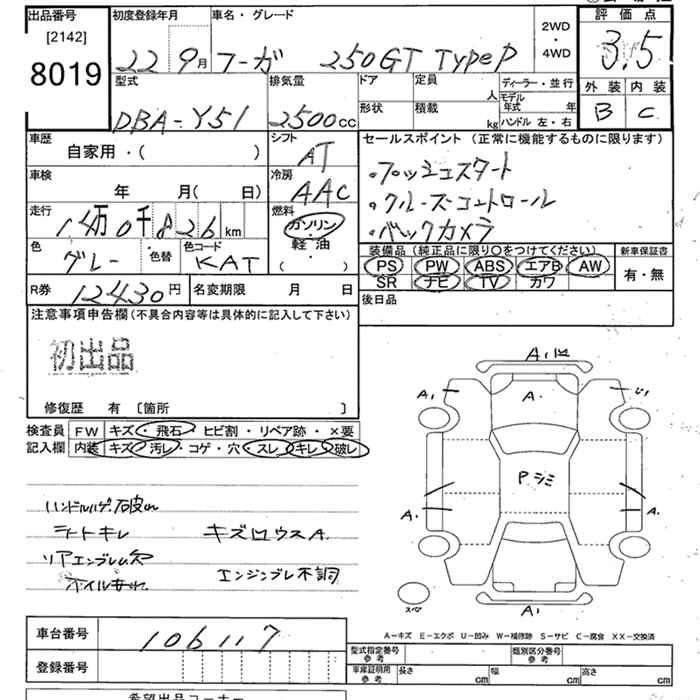 出品番号 初度登録年月 車名・グレード 評価点
[2142] 8019 22 9月 フーガ 250GT TypeP 2WD・4WD 3.5
型式 排気量 ドア 定員 人 ディーラー・並行 外装 内装
DBA-Y51 2500cc 形状 積載 kg モデル年式 年 ハンドル 左・右 B C
車歴 シフト セールスポイント (正常に機能するものに限ります)
自家用・( ) AT ・プッシュスタート
車検 冷房 ・クルーズコントロール
年 月( 日) AAC ・バックカメラ
走行 燃料
14万0千826km ガソリン・軽油・( )
色 色替 色コード 装備品 (純正品に限り○をつけてください) 新車保証書
グレー KAT PS PW ABS エアB AW 有・無
SR ナビ TV カワ
R券 12430円 名変期限 月 日 後日品
注意事項申告欄(不具合内容等は具体的に記入して下さい)
初出品
修復歴 有 〔箇所 〕
検査員 FW キズ・飛石・ヒビ割・リペア跡・×要
記入欄 内装 キズ・汚レ・コゲ・穴・スレ・キレ・破レ
A1
A1 A. U1
Pシミ
A. A.
A1
スペア
シートキレ キズ A.
エンジンブレ不調
A-キズ E-エクボ U-凹み W-補修跡 S-サビ C-腐食 XX-交換済
車台番号 106117
型式指定番号 参考 類別区分番号 参考
登録番号 車庫証明用 参考 長さ cm 幅 cm 高さ cm
希望出品コーナー